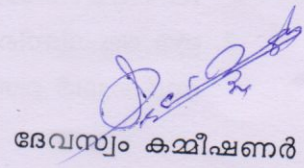 ദേവസ്വം കമ്മീഷണർ